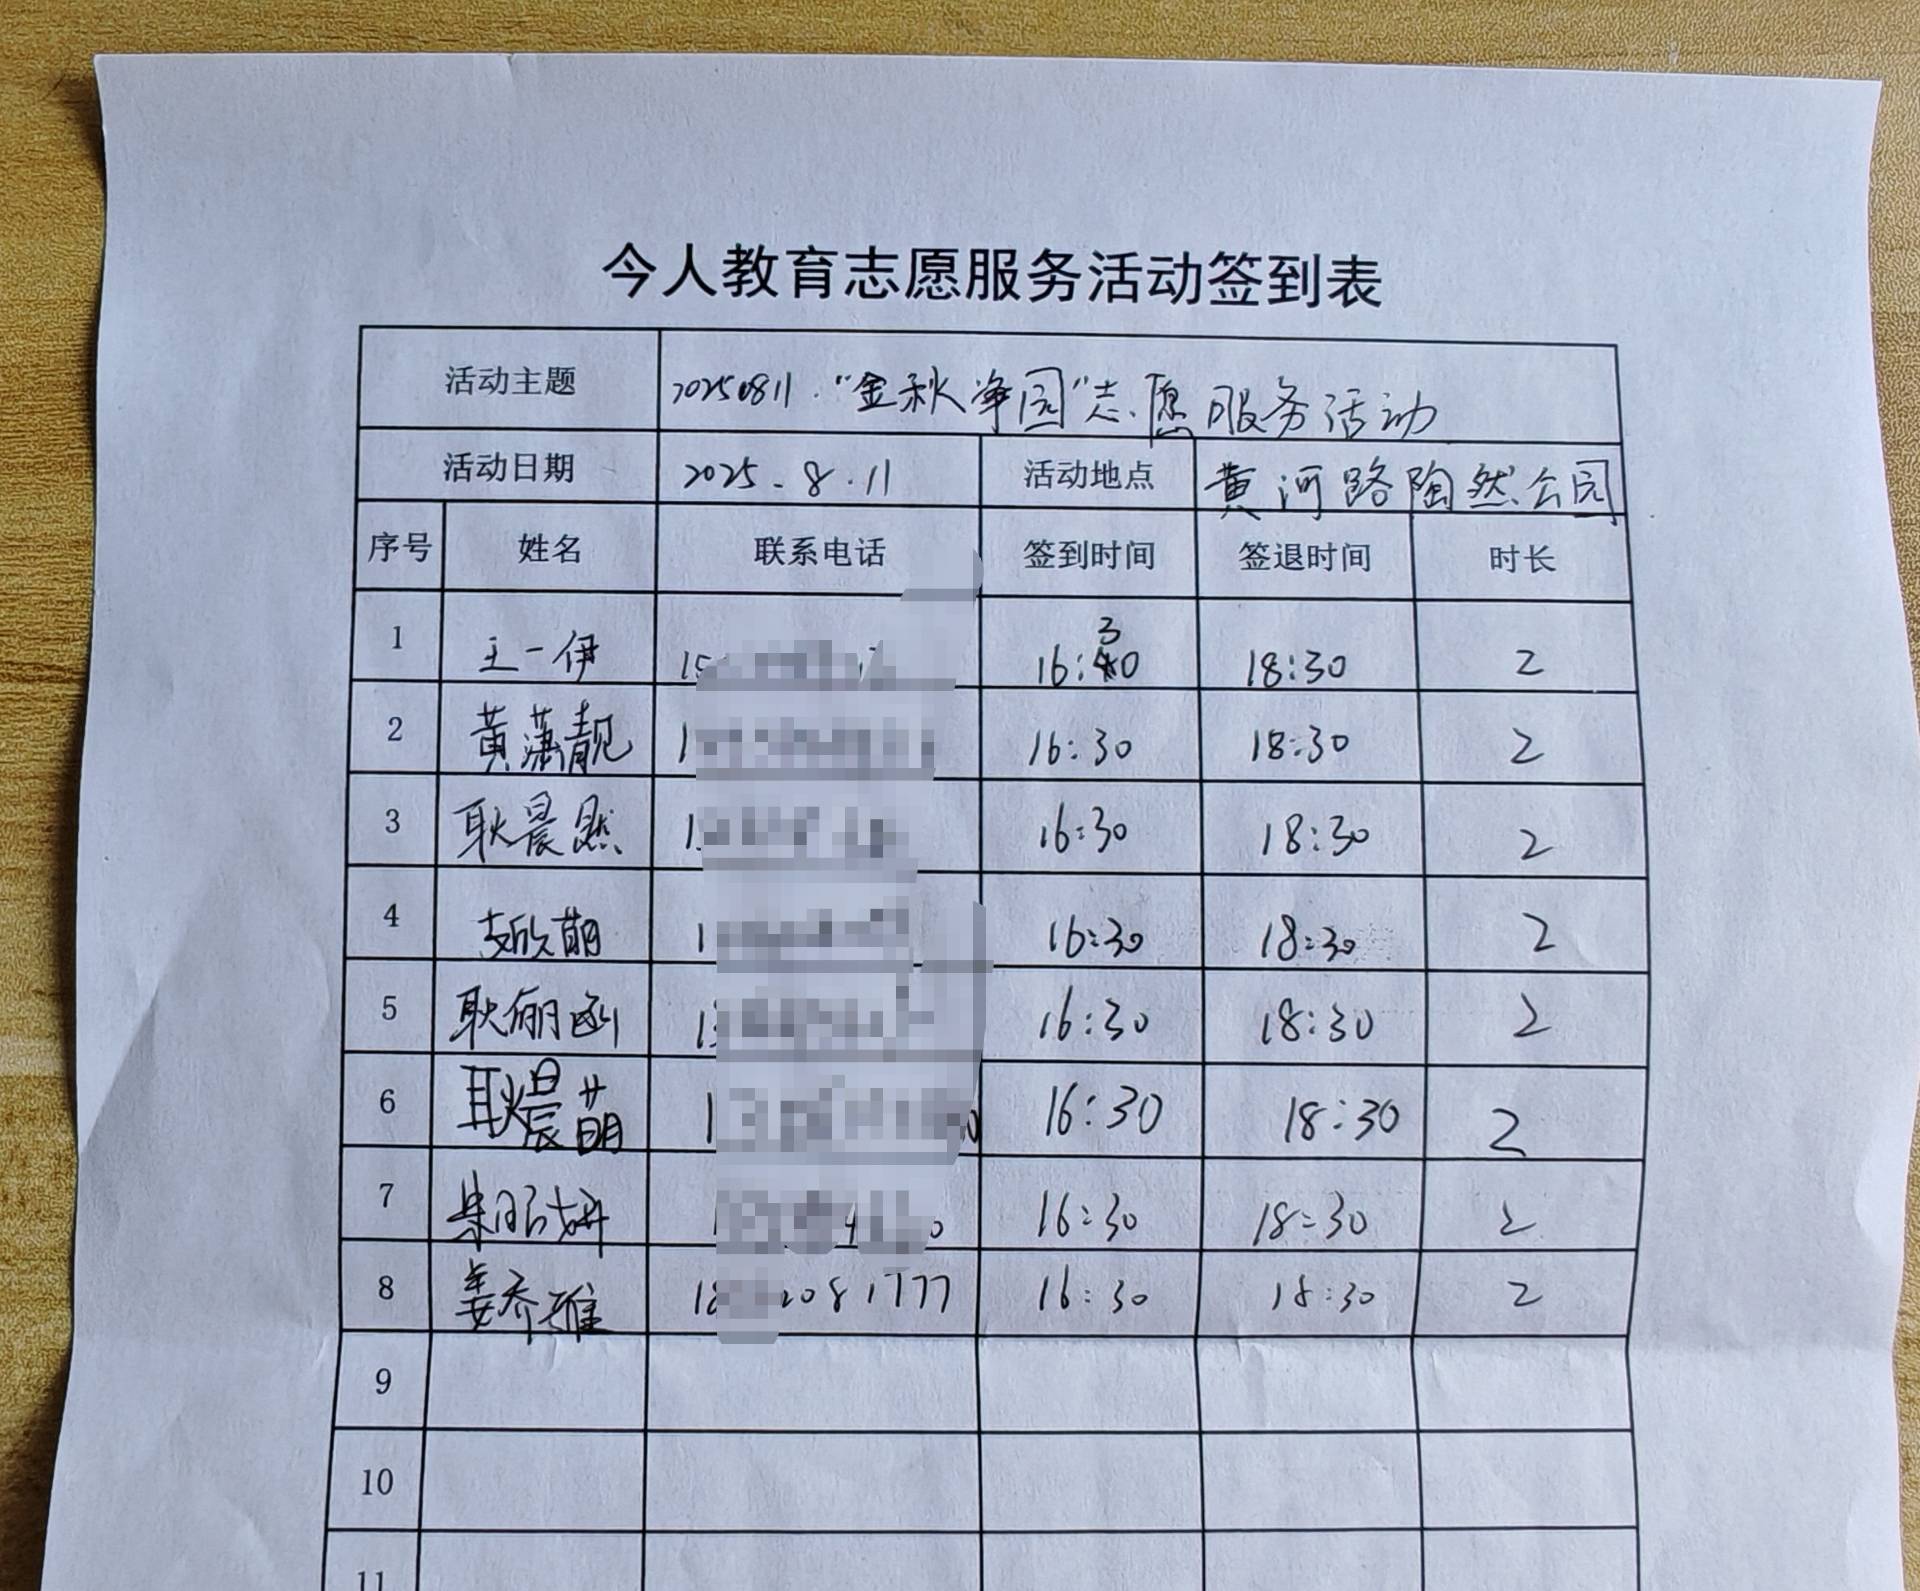 今人教育志愿服务活动签到表
活动主题 20250811."金秋净园"志愿服务活动
活动日期 2025.8.11 活动地点 黄河路陶然公园
序号 姓名 联系电话 签到时间 签退时间 时长
1 王一伊 16:30 18:30 2
2 黄蕅靓 16:30 18:30 2
3 耿晨然 16:30 18:30 2
4 支欣萌 16:30 18:30 2
5 耿俪函 16:30 18:30 2
6 耿晨萌 16:30 18:30 2
7 16:30 18:30 2
8 姜乔雅 16:30 18:30 2
9
10
11